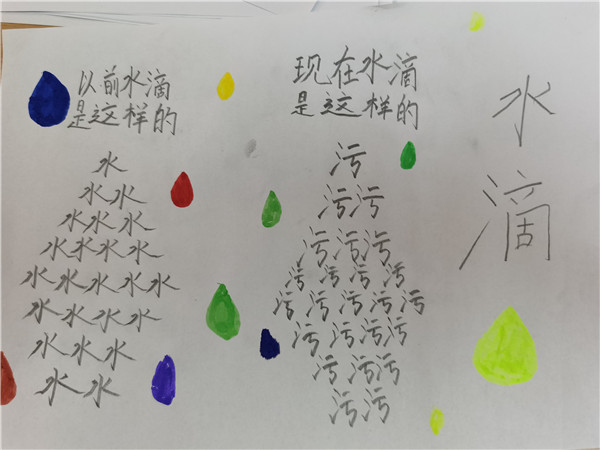 以前水滴
是这样的
水
水水
水水水
水水水水
水水水水水
水水水水
水水水
水水
现在水滴
是这样的
污
污污
污污污
污污污污
污污污污污
污污污污
污污污
污污
水滴